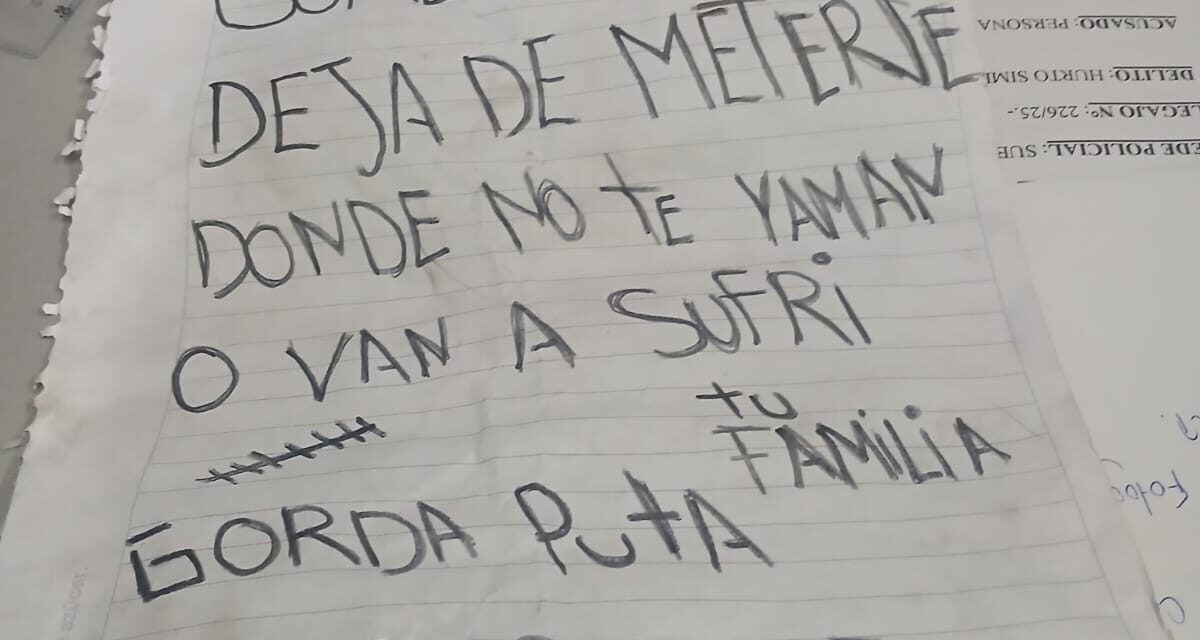 DEJA DE METERSE
DONDE NO TE YAMAN
O VAN A SUFRi
tu
FAMiLiA
GORDA PUtA
ACUSADO: PERSONA
DELITO: HURTO
LEGAJO Nº: 226/25.-
POLICIAL: SUE
azúcar.